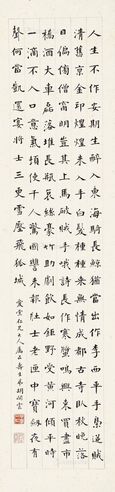 人生不作安期生醉入東海騎長鯨猶當出作李西平手梟逆賊
清舊京金印煌煌未入手白髮種種來無情成都古寺臥秋晚落
日偏傍僧窗明豈其上馬破賊手哦詩長作寒螿鳴興來買盡市
橋酒大車磊落堆長瓶哀絲豪竹助劇飲如鉅野受黃河傾平時
一滴不入口意氣頓使千人驚國讎未報壯士老匣中寶劍夜有
聲何當凱還宴將士三更雪壓飛狐城
仁兄大人屬